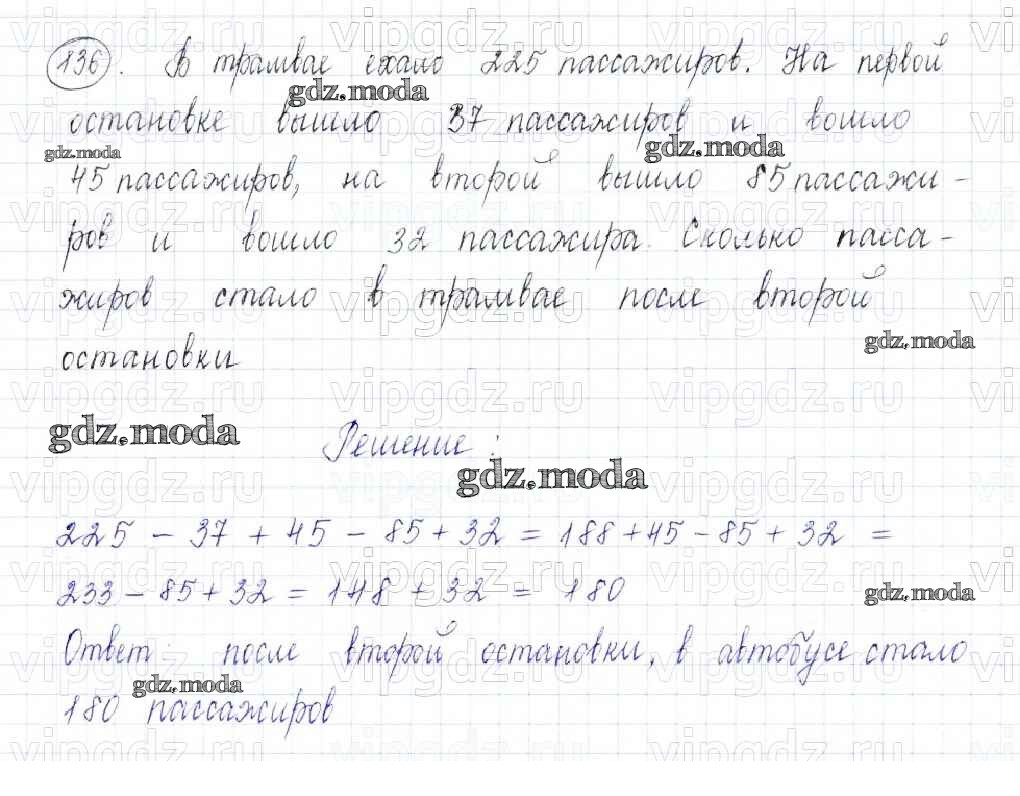 136. В трамвае ехало 225 пассажиров. На первой
остановке вышло 37 пассажиров и вошло
45 пассажиров, на второй вышло 85 пассажи-
ров и вошло 32 пассажира. Сколько пасса-
жиров стало в трамвае после второй
остановки
Решение:
225 - 37 + 45 - 85 + 32 = 188 + 45 - 85 + 32 =
233 - 85 + 32 = 148 + 32 = 180
Ответ: после второй остановки, в автобусе стало
180 пассажиров
gdz.moda
gdz.moda
gdz.moda
gdz.moda
gdz.moda
gdz.moda
gdz.moda
gdz.moda
vipgdz.ru